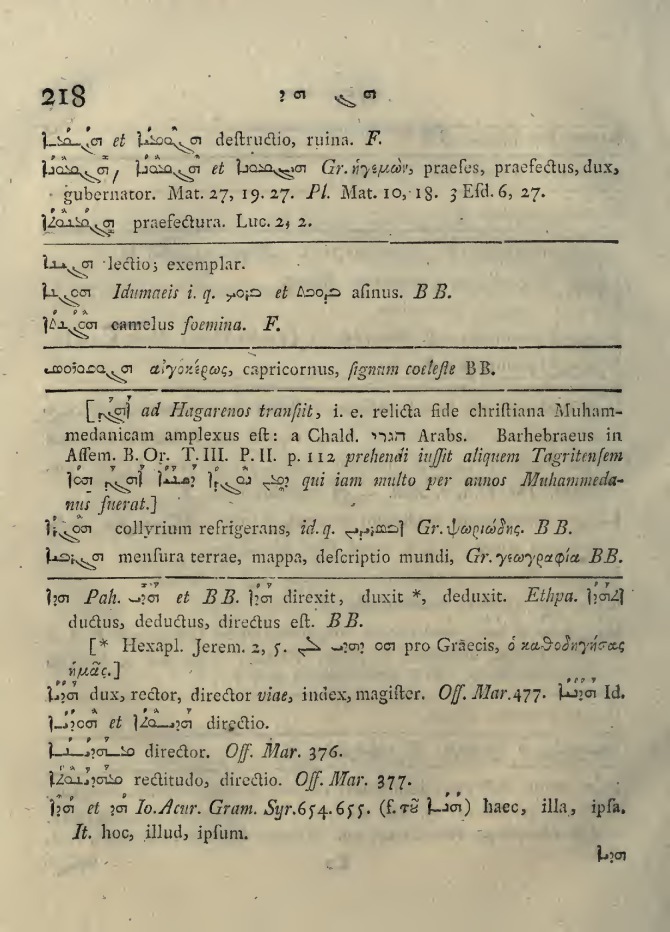 218 ܗܓ ܗܕ
et deſtructio, ruina. F.
et Gr. ἡγεμὼν, praeſes, praefectus, dux,
gubernator. Mat. 27, 19. 27. Pl. Mat. 10, 18. 3 Eſd. 6, 27.
praefectura. Luc. 2, 2.
ܗܓܝܢܐ lectio; exemplar.
Idumaeis i. q. et aſinus. B B.
camelus foemina. F.
αἰγόκέρως, capricornus, ſignum coeleſte BB.
[ܐܗܓܪ] ad Hagarenos tranſiit, i. e. relicta fide chriſtiana Muham-
medanicam amplexus eſt: a Chald. הגרי Arabs. Barhebraeus in
Aſſem. B. Or. T. III. P. II. p. 112 prehendi iuſſit aliquem Tagritenſem
qui iam multo per annos Muhammeda-
nus fuerat.]
collyrium refrigerans, id. q. Gr. ψωριώδης. B B.
menſura terrae, mappa, deſcriptio mundi, Gr. γεωγραφία BB.
ܗܕܐ Pah. ܗܕܝ et B B. ܗܕܐ direxit, duxit *, deduxit. Ethpa.
ductus, deductus, directus eſt. B B.
[* Hexapl. Jerem. 2, 5. ܗܘ ܕܗܕܝ ܠܢ pro Graecis, ὁ καθοδηγήσας
ἡμᾶς.]
ܗܕܝܐ dux, rector, director viae, index, magiſter. Off. Mar. 477. Id.
et directio.
ܡܗܕܝܢܐ director. Off. Mar. 376.
ܡܗܕܝܢܘܬܐ rectitudo, directio. Off. Mar. 377.
ܗܕܐ et ܗܕ Io. Acur. Gram. Syr. 654. 655. (f. τȣ͂ ) haec, illa, ipſa.
It. hoc, illud, ipſum.
ܗܕܝܐ